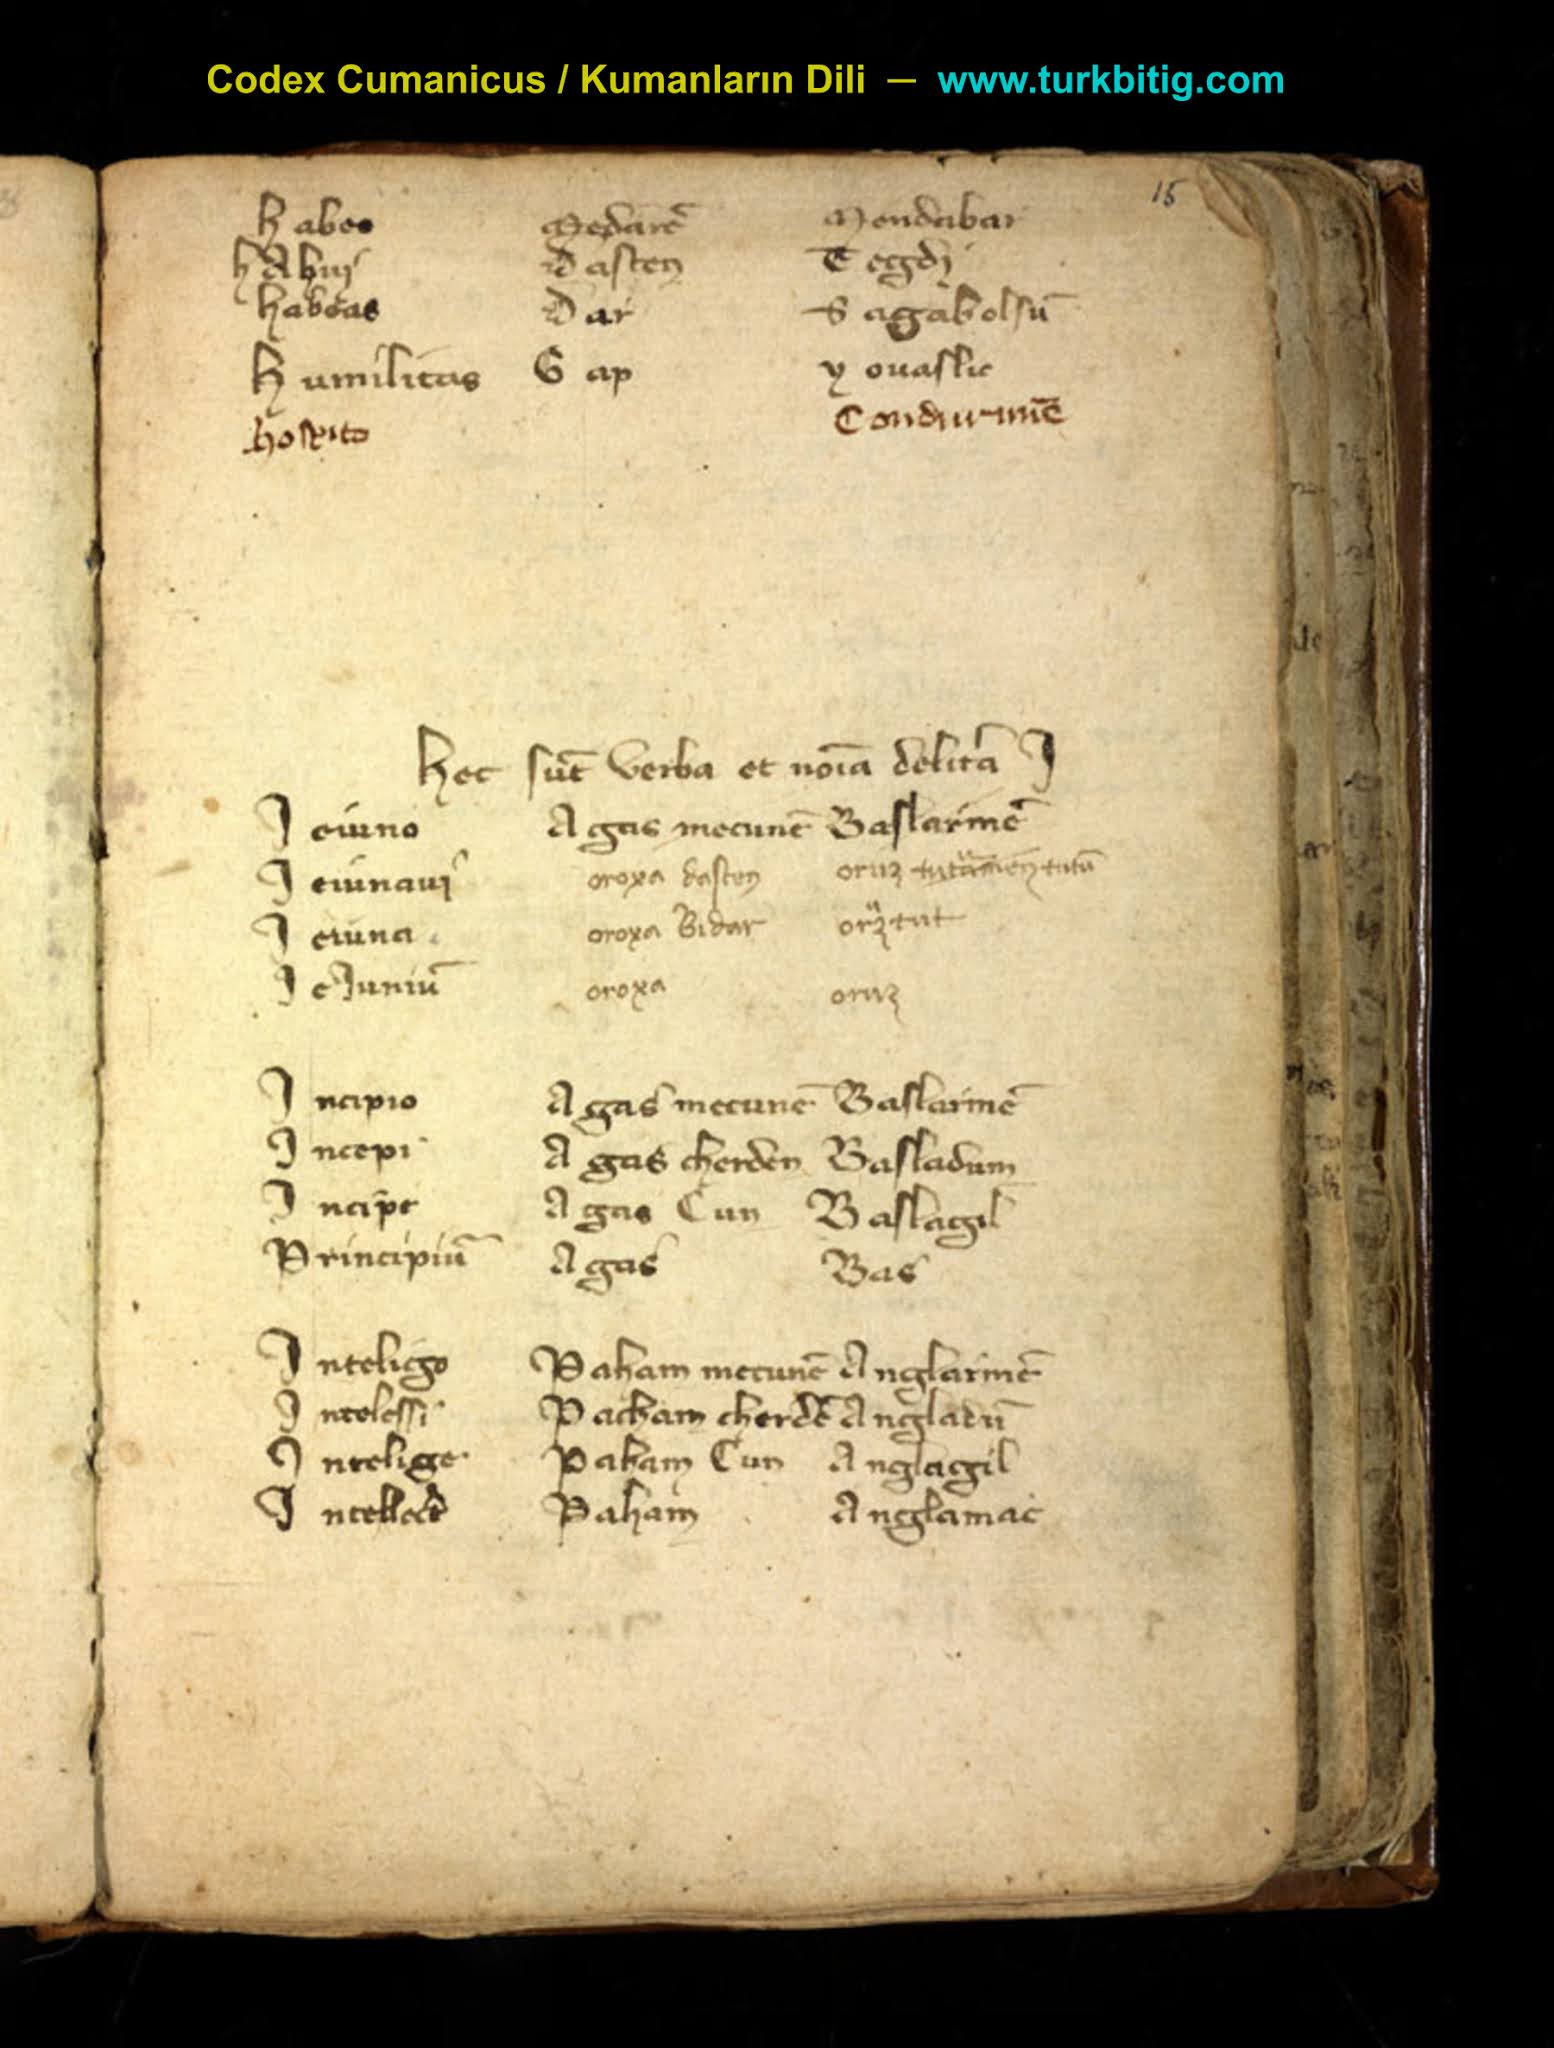 Codex Cumanicus / Kumanların Dili — www.turkbitig.com
15
habeo Medarē Mendabar
habui dasten Tegdi
habeas Dar Sagabolsū
humilitas Gap youaslic
hospito Condurmē
hec sūt verba et noīa delitā I
Jeiuno Agas mecunē Baslarmē
Jeiunaui oroxa dasten oruz tutū
Jeiuna oroxa Bidar oruz tut
JeJuniū oroxa oruz
Incipio Agas mecunē Baslarmē
Incepi Agas cherden Basladum
Incipe Agas Cun Baslagil
Principiū Agas Bas
Inteligo Paham mecunē Anglarmē
Intelessi Pacham cherdē Angladū
Intelige Paham Cun Anglagil
Paham Anglamac